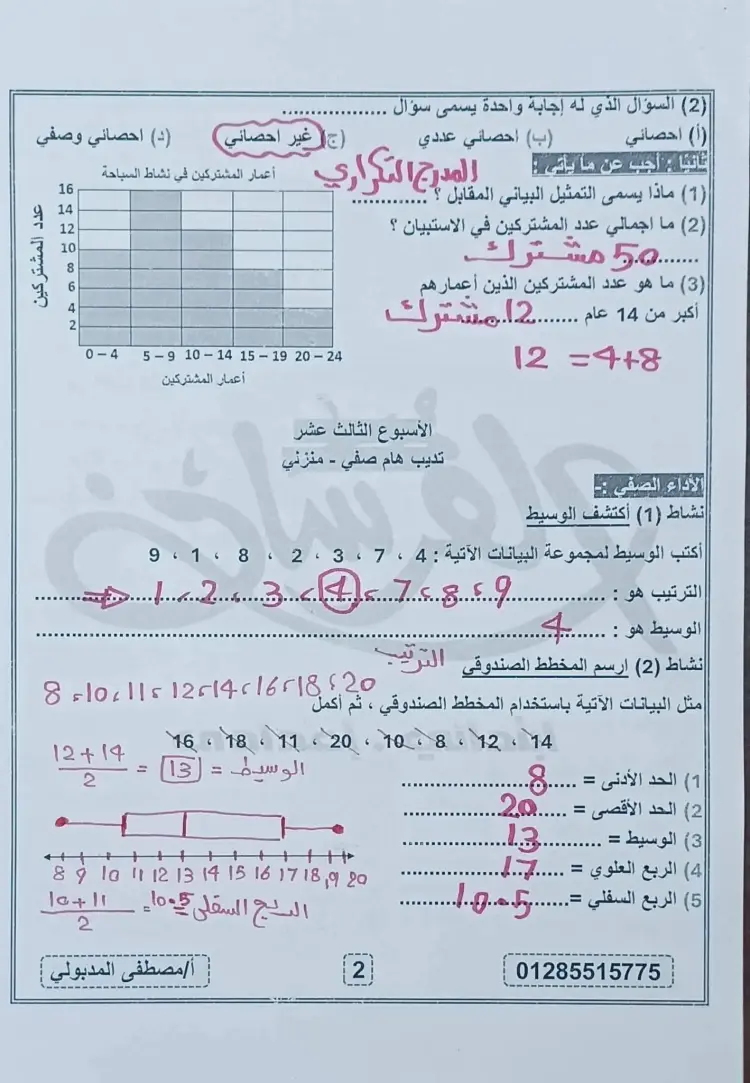 (2) السؤال الذي له إجابة واحدة يسمى سؤال ..................
(أ) احصائي (ب) احصائي عددي (ج) غير احصائي (د) احصائي وصفي
ثانيا : أجب عن ما يأتي :
المدرج التكراري
(1) ماذا يسمى التمثيل البياني المقابل ؟ ............
(2) ما اجمالي عدد المشتركين في الاستبيان ؟
50 مشترك
(3) ما هو عدد المشتركين الذين أعمارهم
أكبر من 14 عام ........ 12 مشترك
12 = 4+8
أعمار المشتركين في نشاط السباحة
عدد المشتركين
16
14
12
10
8
6
4
2
0 – 4 5 – 9 10 – 14 15 – 19 20 – 24
أعمار المشتركين
الأسبوع الثالث عشر
تديب هام صفي - منزلي
الأداء الصفي :-
نشاط (1) أكتشف الوسيط
أكتب الوسيط لمجموعة البيانات الآتية : 4 ، 7 ، 3 ، 2 ، 8 ، 1 ، 9
الترتيب هو : 1 ، 2 ، 3 ، 4 ، 7 ، 8 ، 9
الوسيط هو : 4
نشاط (2) إرسم المخطط الصندوقي
الترتيب
8 ، 10 ، 11 ، 12 ، 14 ، 16 ، 18 ، 20
مثل البيانات الآتية باستخدام المخطط الصندوقي ، ثم أكمل
14 ، 12 ، 8 ، 10 ، 20 ، 11 ، 18 ، 16
الوسيط = 13 = 12+14 / 2
1) الحد الأدنى = 8
2) الحد الأقصى = 20
3) الوسيط = 13
4) الربع العلوي = 17
5) الربع السفلي = 10.5
8 9 10 11 12 13 14 15 16 17 18 19 20
الربع السفلي = 10.5 = 10+11 / 2
01285515775
2
أ/مصطفى المدبولي